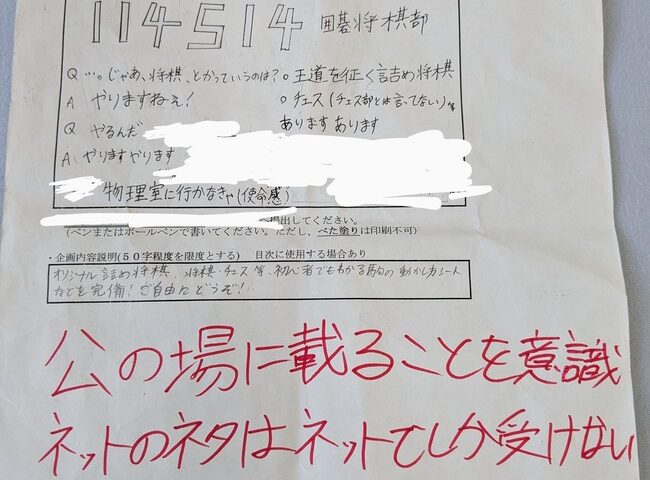 114514 囲碁将棋部
Q …。じゃあ、将棋、とかっていうのは?
A やりますねぇ!
Q やるんだ
A: やりますやります
○王道を征く詰め将棋
○チェス(チェス部とは言ってない)等
あります あります
物理室に行かなきゃ(使命感)
提出してください。
(ペンまたはボールペンで書いてください。ただし、べた塗りは印刷不可)
・企画内容説明(50字程度を限度とする) 目次に使用する場合あり
オリジナル詰め将棋、将棋・チェス等、初心者でもわかる駒の動かし方シート
などを完備!ご自由にどうぞ!
公の場に載ることを意識
ネットのネタはネットでしか受けない